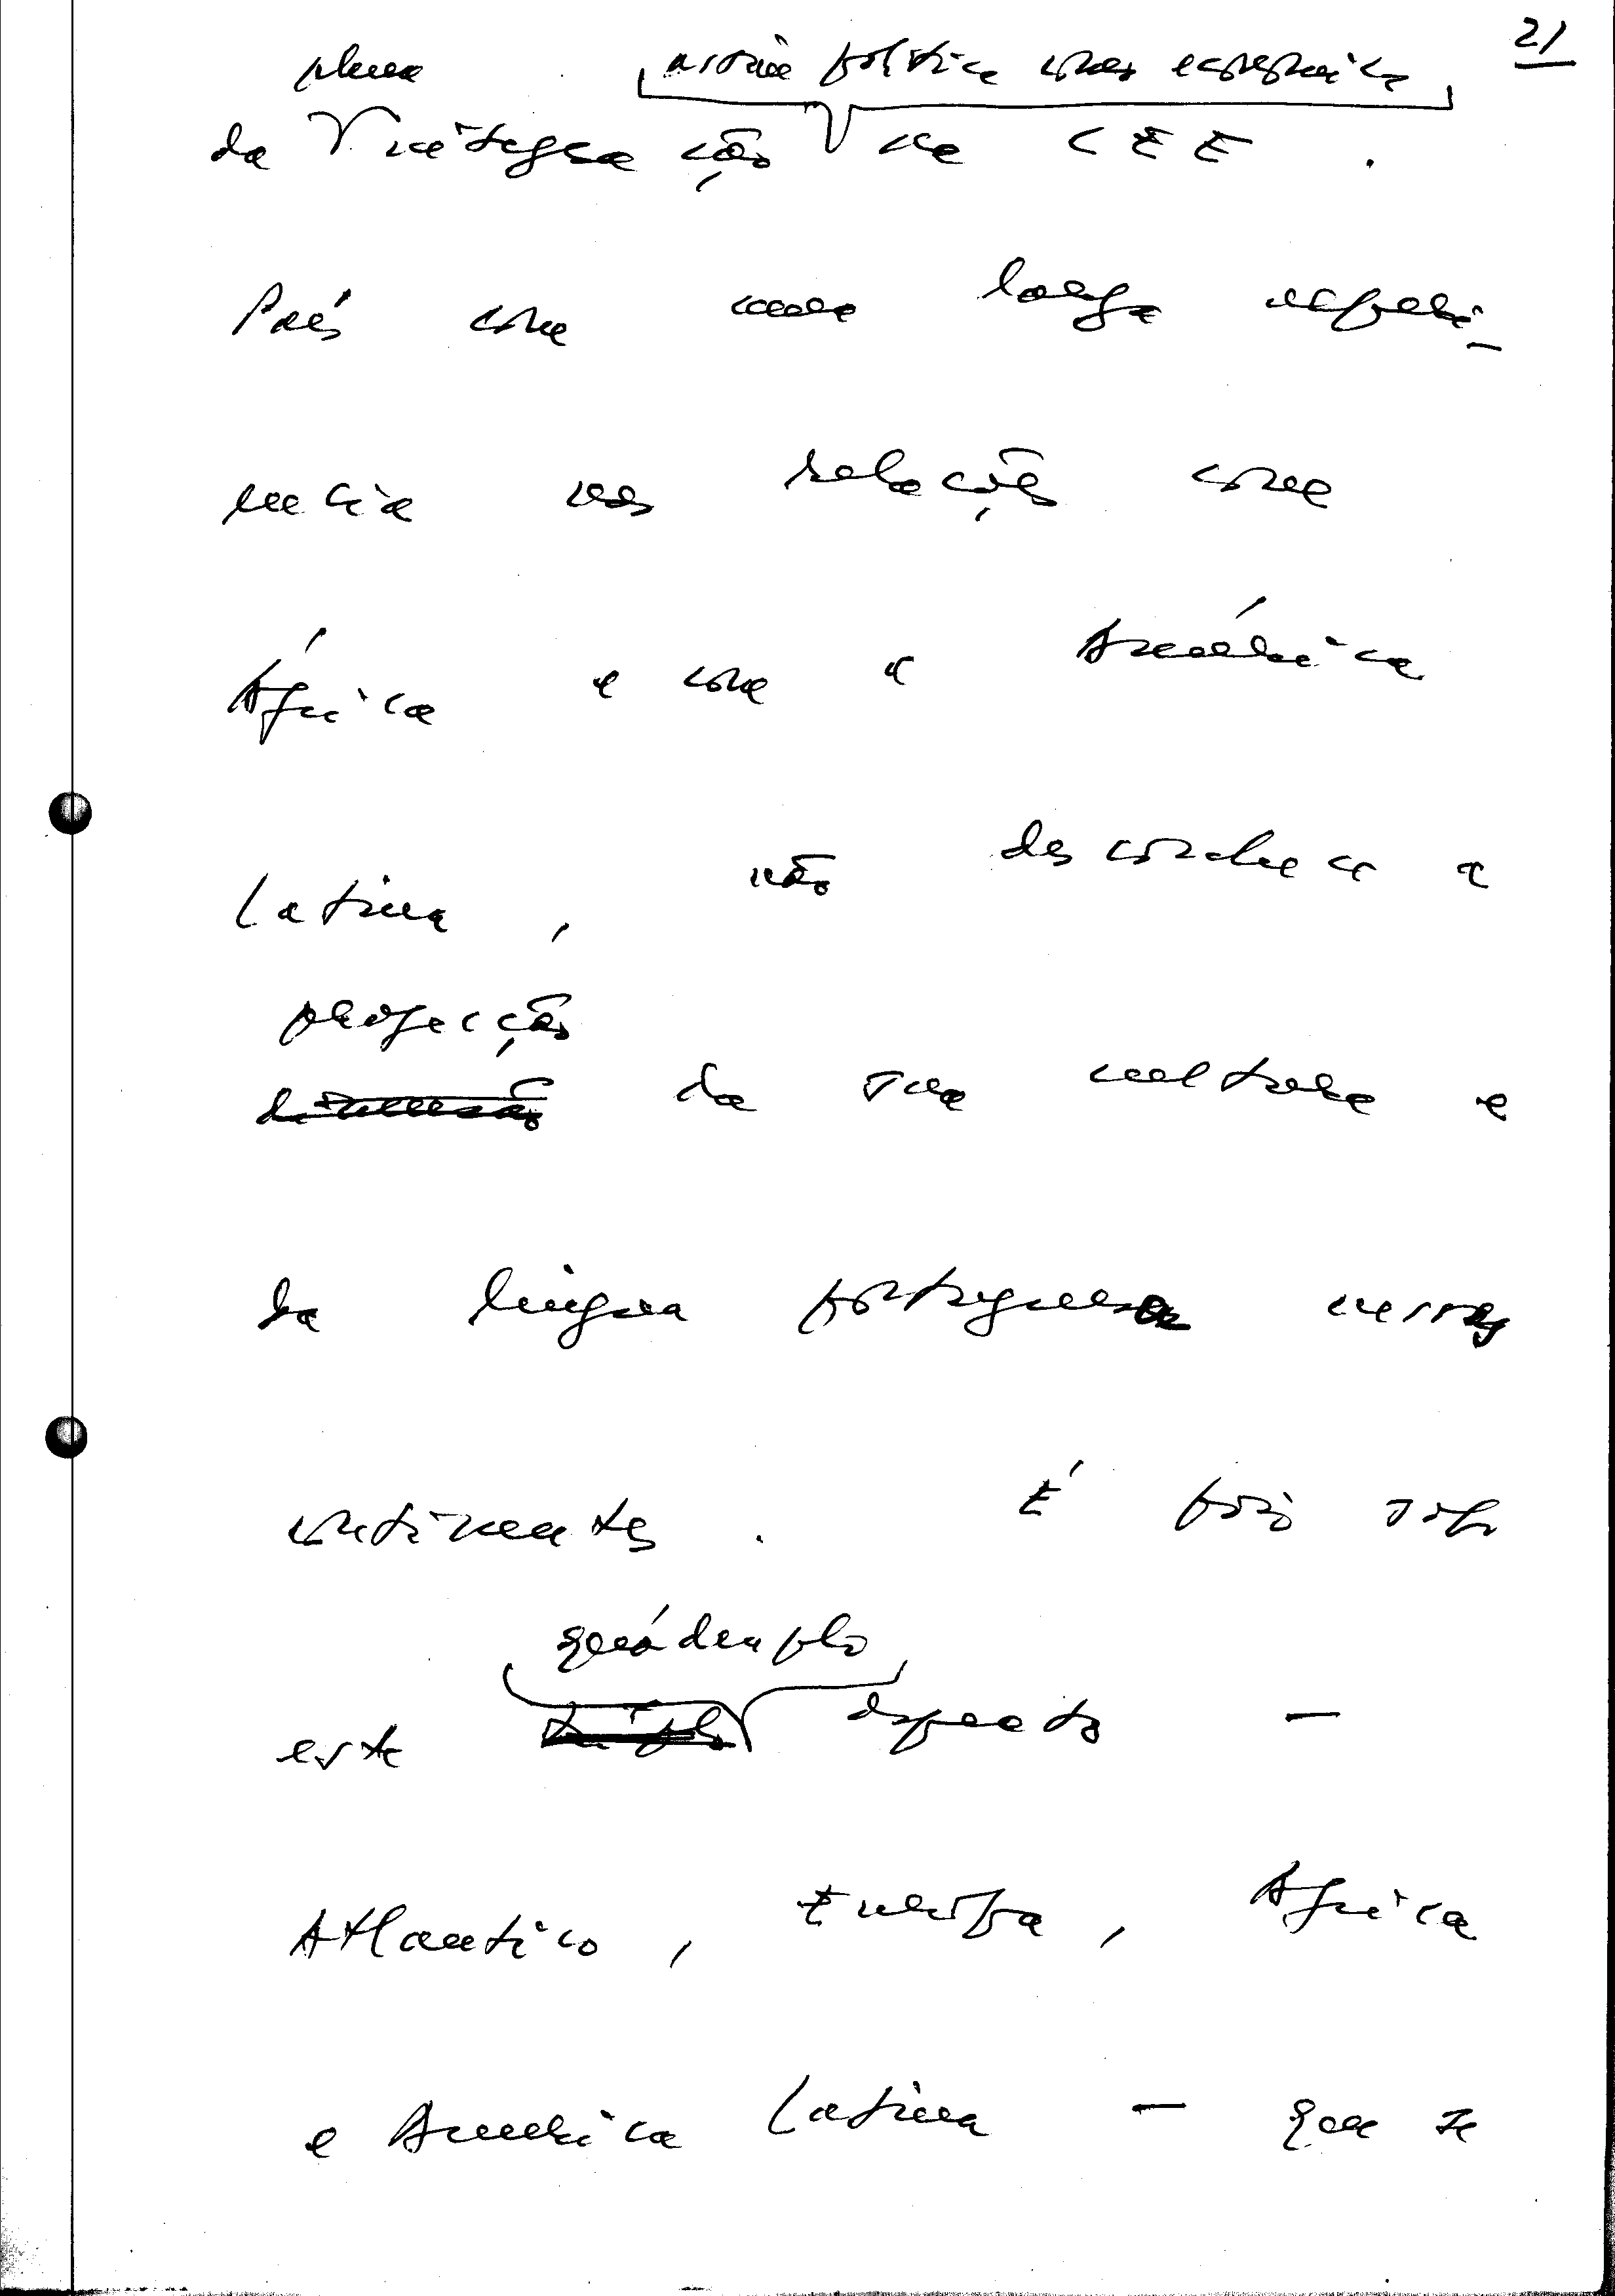 21
plena
assim política como económica
da integração na CEE.
País com uma longa experi-
ência nas relações com
África e com a América
Latina, não desconhece a
projecção
dimensão da sua cultura e
da língua portuguesa nesses
continentes. É pois sob
quádruplo
este triplo aspecto —
Atlantico, Europa, África
e América Latina — que se